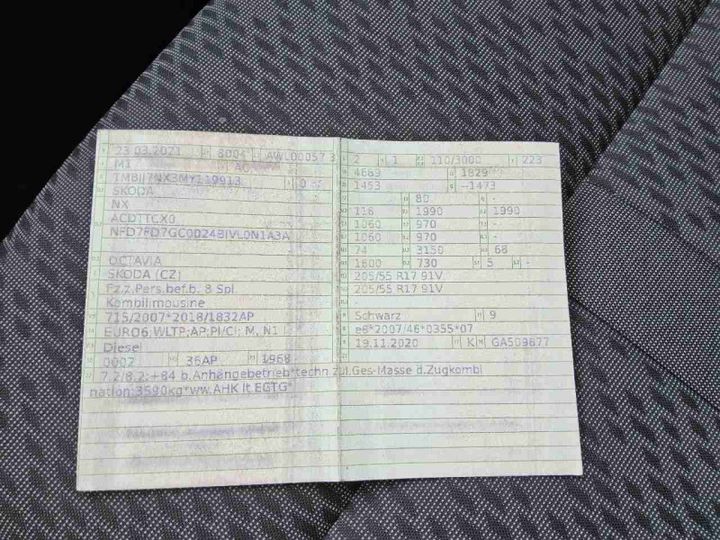 23.03.2021 8004 AWL00057 3
M1 AC
TMBJJ7NX3MY119913 0
SKODA
NX
ACDTTCX0
NFD7FD7GC0D24BIVL0N1A3A
OCTAVIA
SKODA (CZ)
Fz.z.Pers.bef.b. 8 Spl.
Kombilimousine
715/2007*2018/1832AP
EURO6;WLTP;AP;PI/CI; M, N1 I
Diesel
0007 36AP 1968
7.2/8.2:+84 b.Anhängebetrieb*techn.zul.Ges-Masse d.Zugkombi
nation:3590kg*ww.AHK lt.EGTG*
2 1 110/3000 223
4689 1829
1453 --1473
80 -
116 1990 1990
1060 970 -
1060 970 -
74 3150 68
1600 730 5 -
205/55 R17 91V
205/55 R17 91V
-
Schwarz 9
e8*2007/46*0355*07
19.11.2020 K GA509677